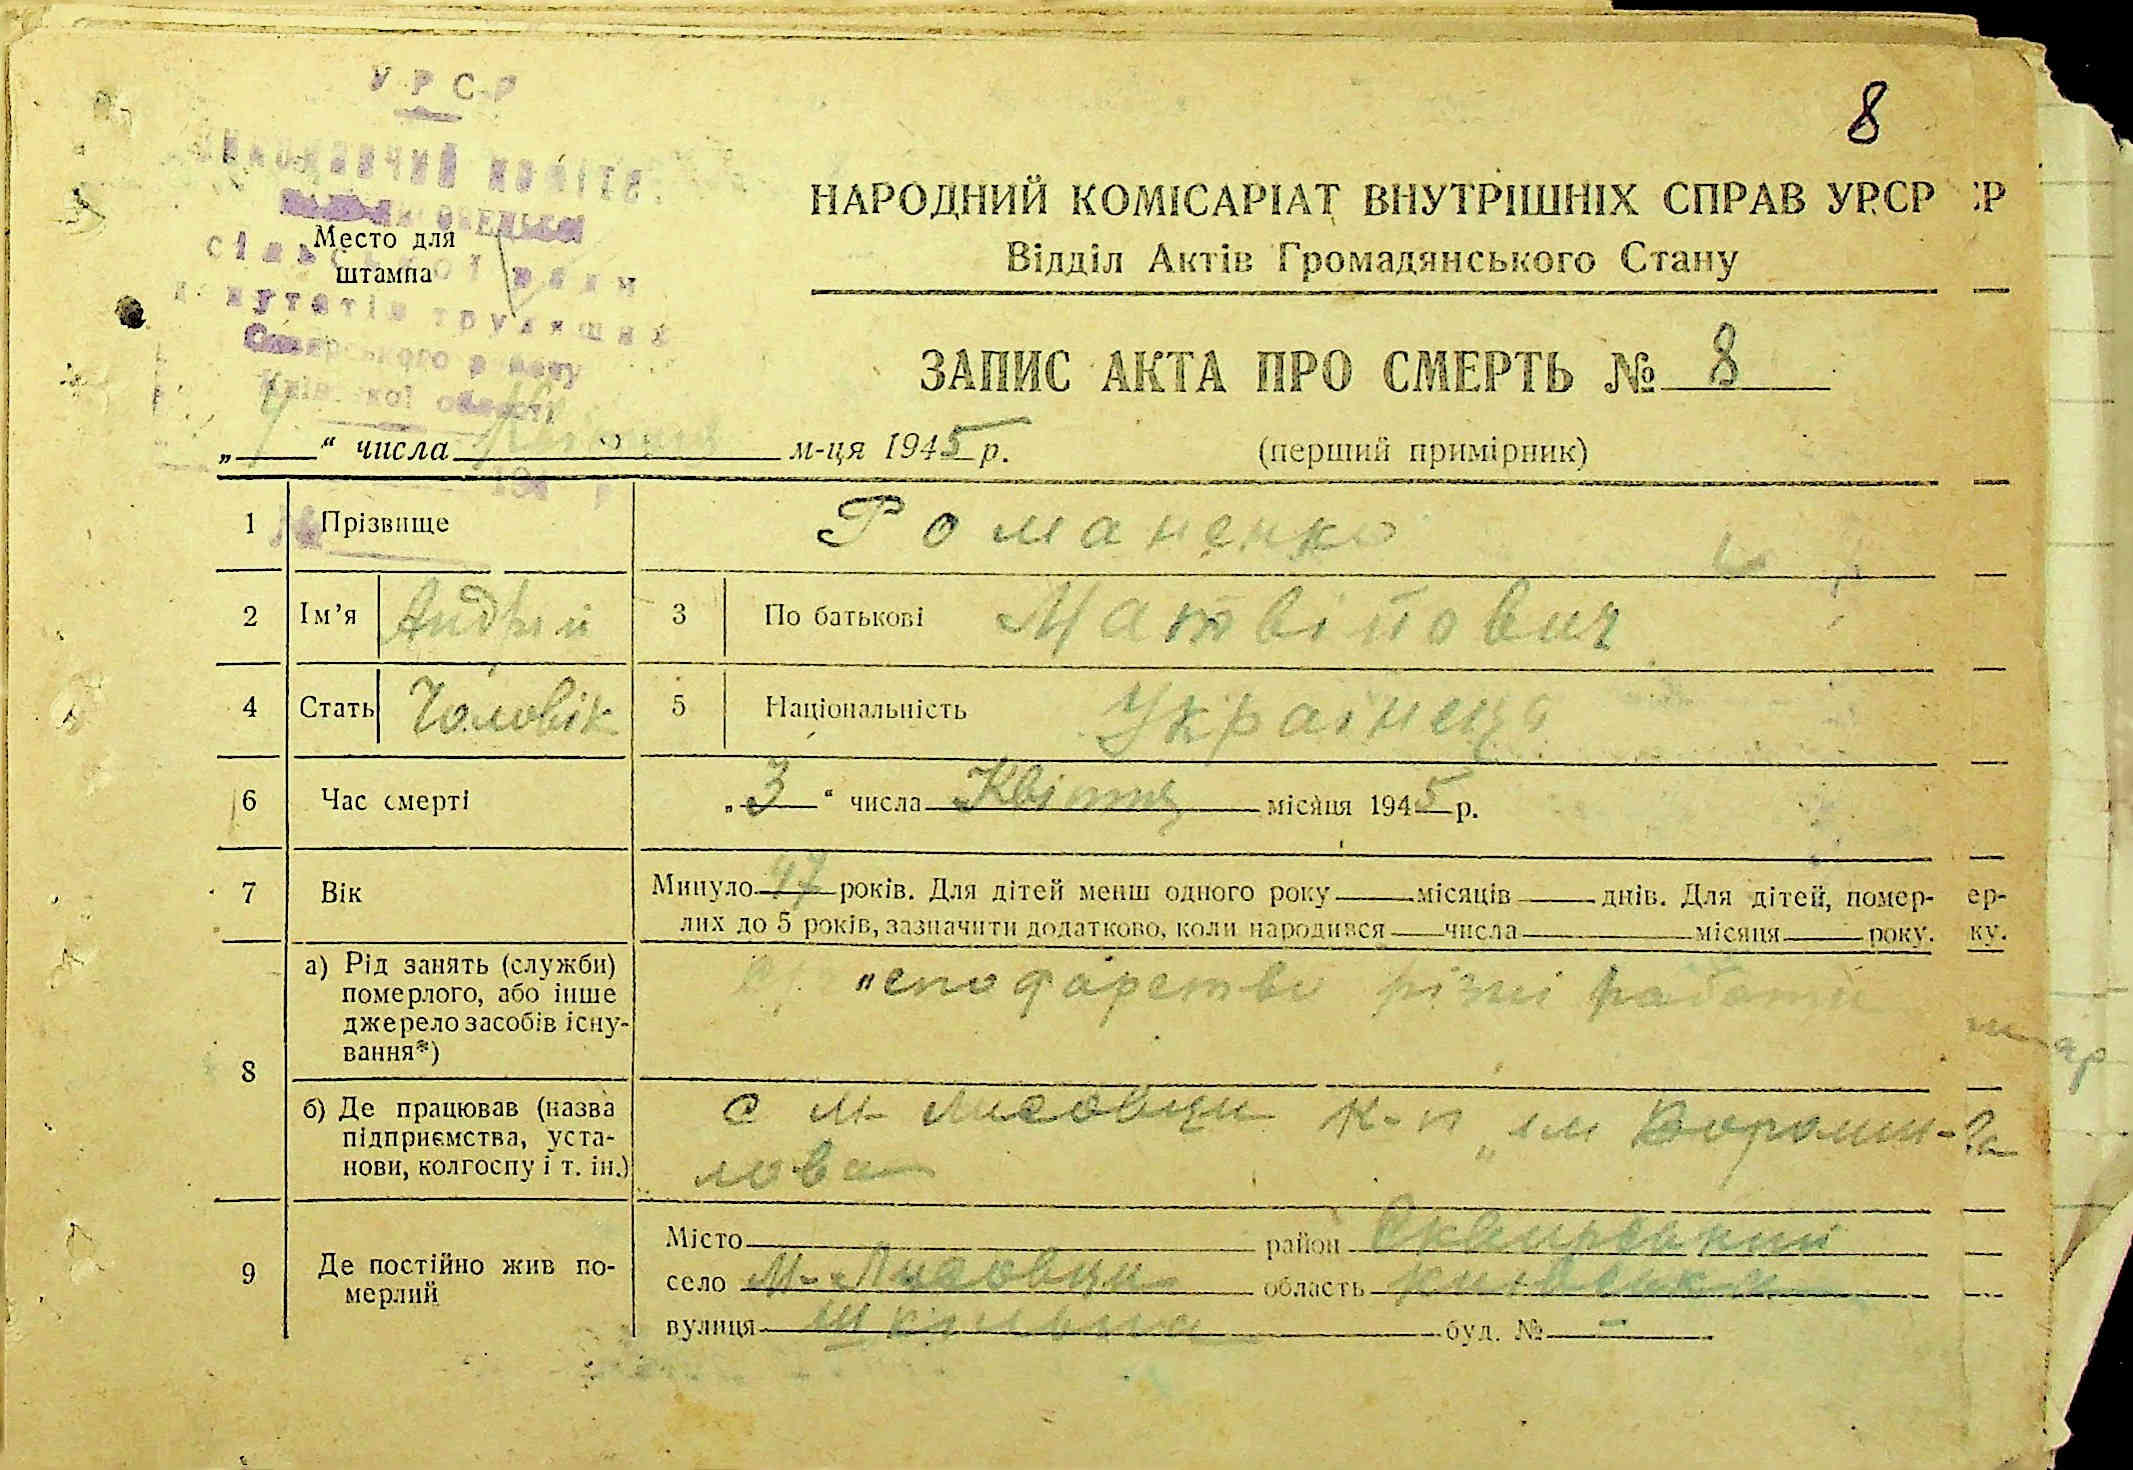 8
У Р С Р
НАРОДНИЙ КОМІСАРІАТ ВНУТРІШНІХ СПРАВ УРСР
Відділ Актів Громадянського Стану
Место для
штампа
сільської ради
депутатів трудящих
Сквирського району
Київської області
ЗАПИС АКТА ПРО СМЕРТЬ № 8
„ “ числа м-ця 1945 р. (перший примірник)
1 Прізвище Романенко
2 Ім’я Андрій 3 По батькові Матвійович
4 Стать Чоловік 5 Національність Українець
6 Час смерті „3“ числа Квітня місяця 1945 р.
7 Вік Минуло 47 років. Для дітей менш одного року місяців днів. Для дітей, помер-
лих до 5 років, зазначити додатково, коли народився числа місяця року.
8 а) Рід занять (служби)
померлого, або інше
джерело засобів існу-
вання*)
різні работи
б) Де працював (назва
підприємства, уста-
нови, колгоспу і т. ін.)
с М-Лисовци к-п „им Вороши-
лова
9 Де постійно жив по-
мерлий
Місто район Сквирський
село М-Лисовци область
вулиця Шкільна буд. № –